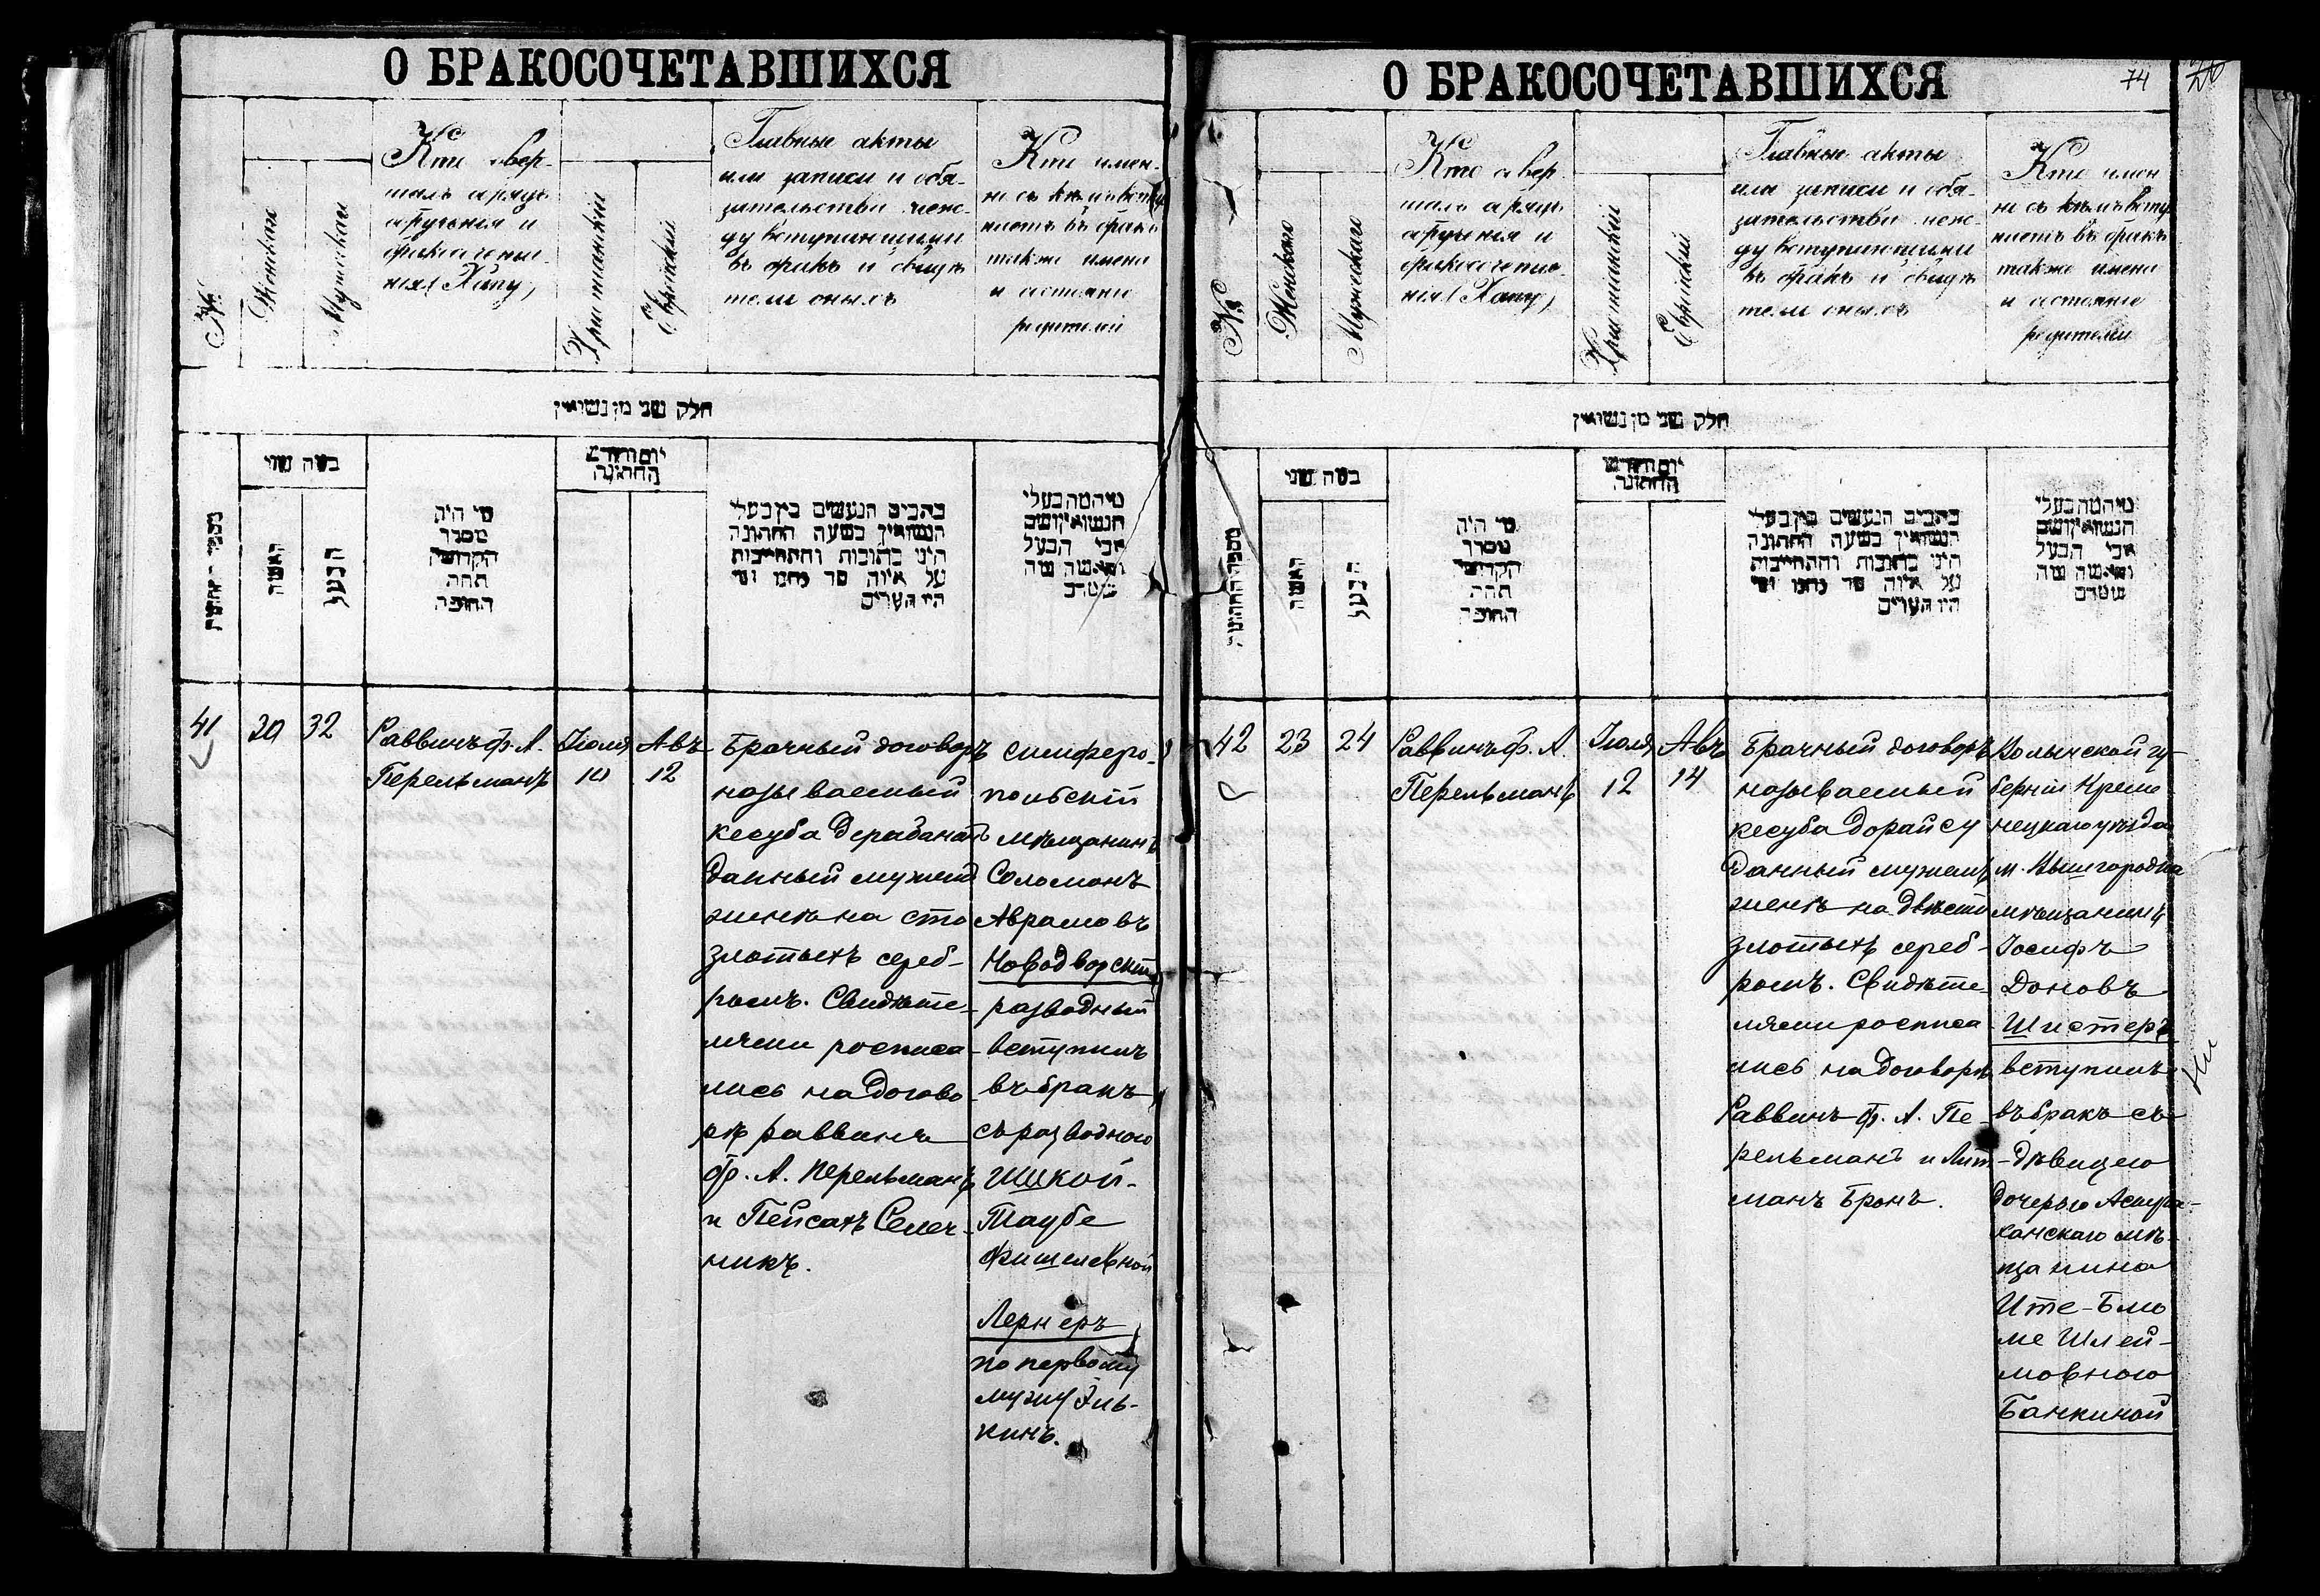 О БРАКОСОЧЕТАВШИХСЯ
№
Женская
Мужская
Кто совер-
шалъ обрядъ
обрученія и
бракосочета-
нія (Хапу)
Христіанскій
Еврейскій
Главные акты
или записи и обя-
зательства меж-
ду вступающими
въ бракъ и свидѣ
тели оныхъ
Кто имен-
но съ кѣмъ всту
паетъ въ бракъ
также имена
и состояніе
родителей
חלק שני מן נשואין
כמה שני
האשה
הבעל
מי היה
מסדר
הקדושין
תחת
החופה
יום וחודש
החתונה
כתבים הנעשים בין בעלי
הנשואין בשעה החתונה
היינו כתובות והתחייבות
על איזה סך נתנו ומי
היו העדים
מי המה בעלי
הנשואין ושם
אבי הבעל
והאשה
41
20
32
Раввинъ Ф. А.
Перельманъ
Іюля
10
Авъ
12
Брачный договоръ
называемый
кесуба Дерабанатъ
данный мужемъ
женѣ на сто
злотыхъ сереб-
ромъ. Свидѣте-
лями росписа-
лись на догово-
рѣ раввинъ
Ф. А. Перельманъ
и Пейсахъ Селеч-
никъ.
симферо-
польскій
мѣщанинъ
Соломонъ
Аврамовъ
Новодворскій
разводный
вступилъ
въ бракъ
съ разводною
Шикой-
Таубе
Фишелевной
Лернеръ
по первому
мужу Эль-
кинъ.
О БРАКОСОЧЕТАВШИХСЯ
74
№
Женская
Мужская
Кто совер
шалъ обрядъ
обрученія и
бракосочета-
нія (Хапу)
Христіанскій
Еврейскій
Главные акты
или записи и обя
зательства меж-
ду вступающими
въ бракъ и свидѣ
тели оныхъ
Кто имен
но съ кѣмъ всту
паетъ въ бракъ
также имена
и состояніе
родителей
חלק שני מן נשואין
כמה שני
האשה
הבעל
מי היה
מסדר
הקדושין
תחת
החופה
יום וחודש
החתונה
כתבים הנעשים בין בעלי
הנשואין בשעה החתונה
היינו כתובות והתחייבות
על איזה סך נתנו ומי
היו העדים
מי המה בעלי
הנשואין ושם
אבי הבעל
והאשה
42
23
24
Раввинъ Ф. А.
Перельманъ
Іюля
12
Авъ
14
Брачный договоръ
называемый
кесуба Дорайсу
данный мужемъ
женѣ на двѣсти
злотыхъ сереб-
ромъ. Свидѣте-
лями росписа-
лись на договорѣ
Раввинъ Ф. А. Пе-
рельманъ и Лит-
манъ Бронъ.
Волынской гу-
берніи Креме
нецкаго уѣзда
м. Вышгородка
мѣщанинъ
Іосифъ
Доновъ
Шистеръ
вступилъ
въ бракъ съ
дѣвицею
дочерью Астра-
ханскаго мѣ-
щанина
Ите-Блю
ме Шлей-
мовною
Банкиной